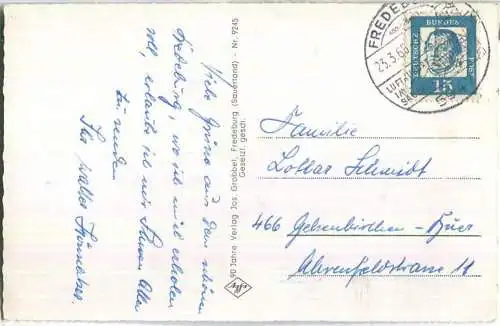 Viele Grüße aus dem schönen
Fredeburg, wo ich mich erholen
soll, erlaube ich mir Ihnen Allen
zu senden
Ihr Walter
90 Jahre Verlag Jos. Grobbel, Fredeburg (Sauerland) - Nr. 9245
Gesetzl. gesch.
FREDEBURG
23.3.6
LUFT
DEUTSCHE
BUNDES
15
Familie
Lothar Schmidt
466 Gelsenkirchen-Buer
Ahrenfeldstrasse 11